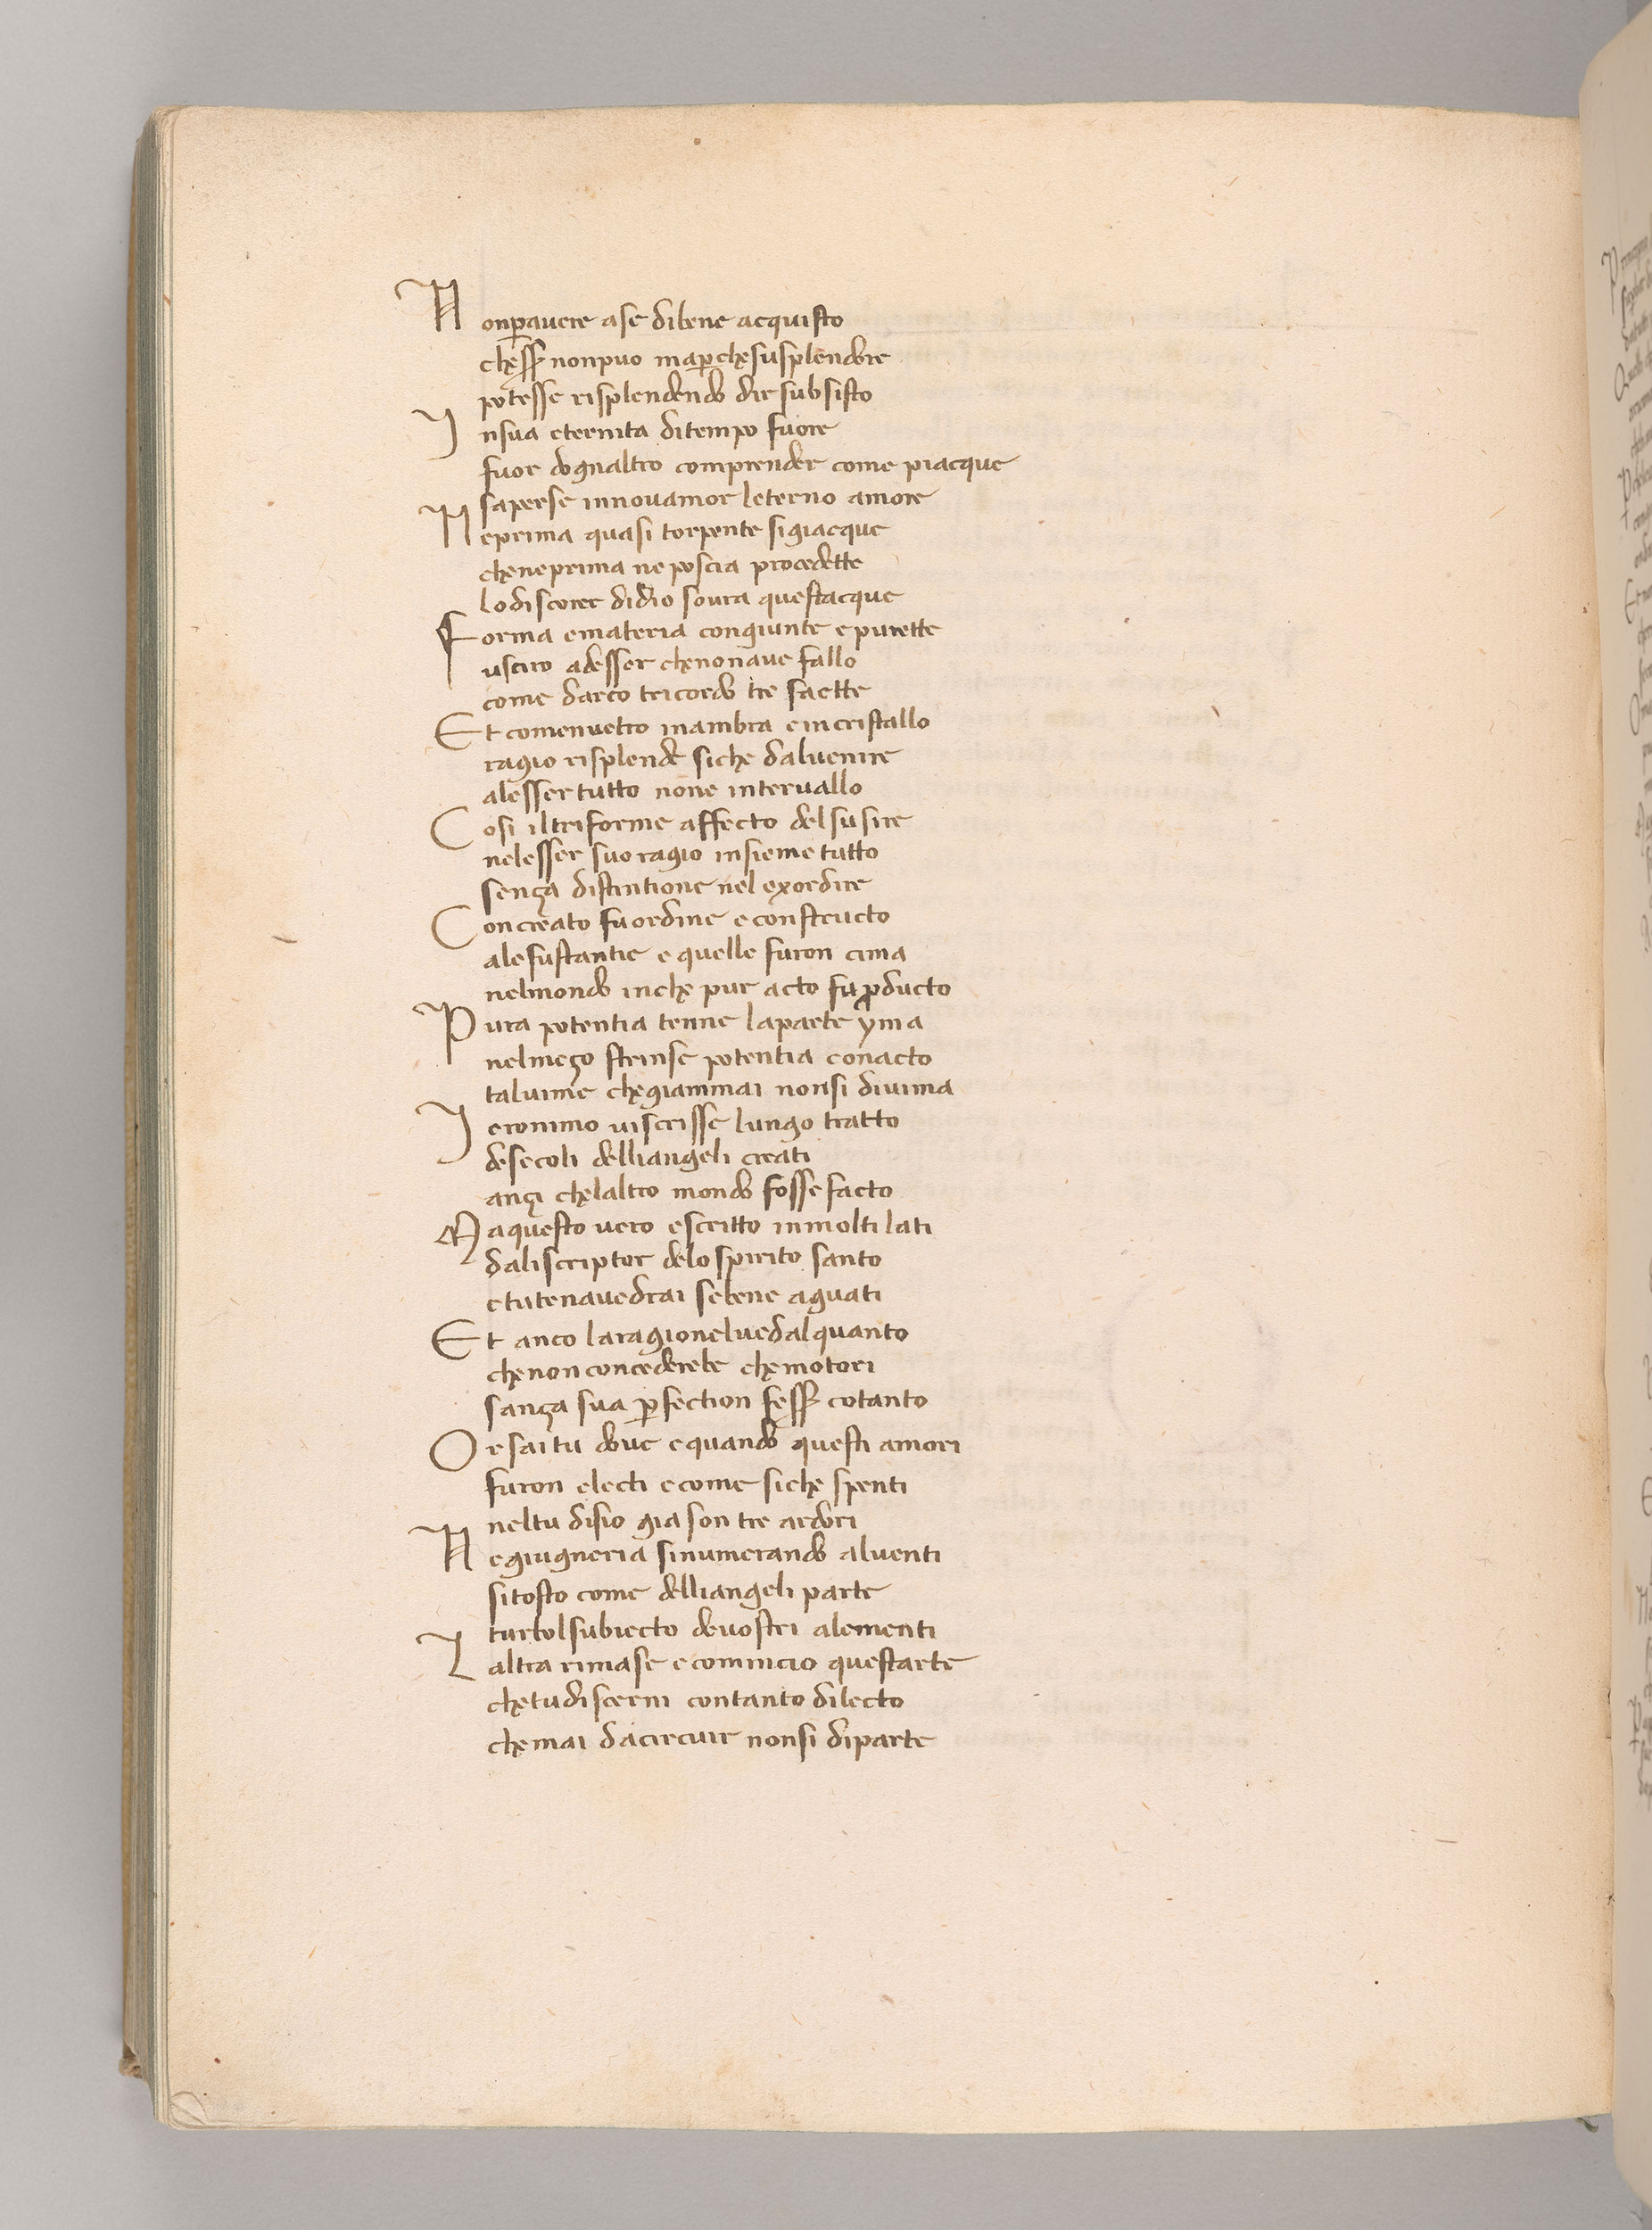 Nonꝑavere ase dibene acquisto
cheess̃ nonpuo maꝑchesusplendore
potesse risplendendo dir subsisto
Insua eternita ditempo fuore
fuor dognaltro comprender come piacque
saperse innovamor leterno amore
Neprima quasi torpente sigiacque
cheneprima ne poscia procedette
lodiscorrer didio sovra questacque
Forma emateria congiunte epurette
usciro adesser chenonave fallo
come darco tricordo tre saette
Et comenvetro inambra eincristallo
ragio risplende siche dalvenire
alesser tutto none intervallo
Cosi iltriforme affecto delsusire
nelesser suo ragio insieme tutto
sença distintione nel exordire
Concreato fuordine econstructo
alesustantie e quelle furon cima
nelmondo inche pur acto fu ꝓducto
Pura potentia tenne laparte yma
nelmeço strinse potentia conacto
talvime chegiammai nonsi divima
Ieronimo viscrisse lungo tratto
desecoli delliangeli creati
ançi chelaltro mondo fosse facto
Maquesto vero escritto inmolti lati
daliscriptor delo spirito santo
etutenavedrai sebene aguati
Et anco laragionelvedalquanto
chenonconcederebe chemotori
sança sua ꝑfection fess̃ cotanto
Orsaitu dove equando questi amori
furon electi ecome siche spenti
neltu disio gia son tre ardori
Negiugneria sinumerando alventi
sitosto come delliangeli parte
turbolsubiecto devostri alementi
Laltra rimase ecomincio questarte
chetudiscerni contanto dilecto
chemai dacircuir nonsi diparte